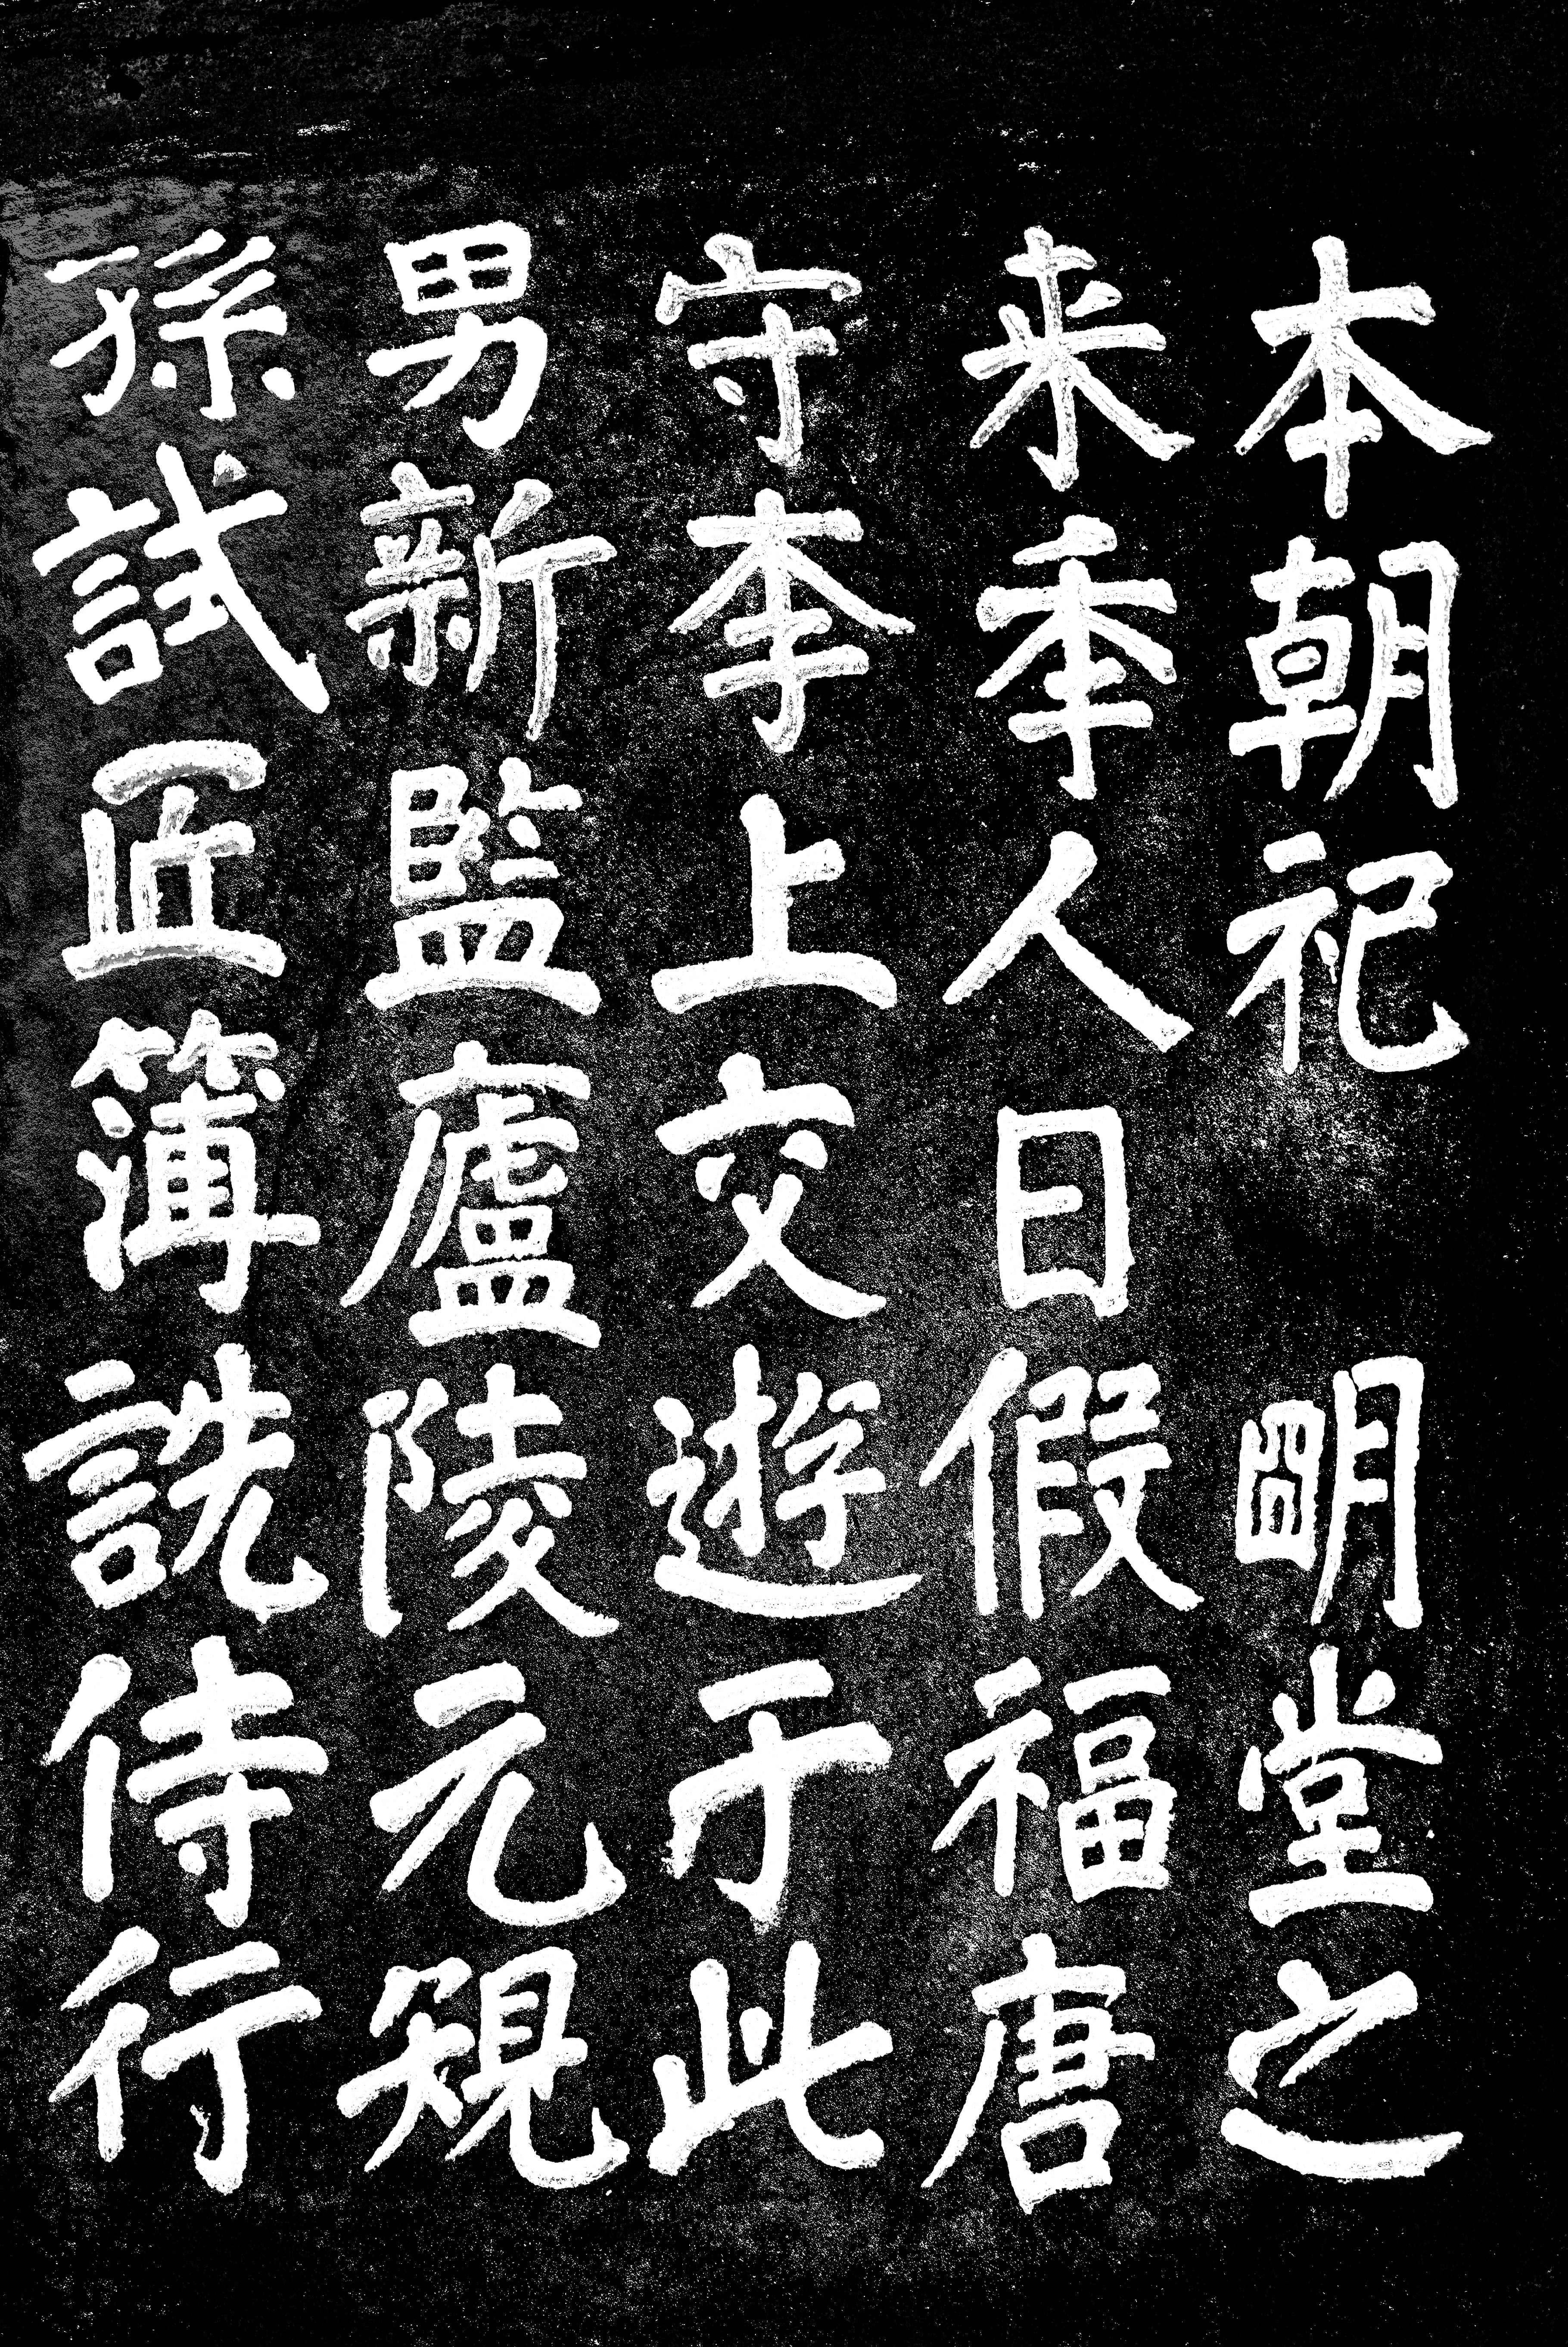 本朝祀　朙堂之
来秊人日假福唐
守李上交遊于此
男新監廬陵元䂓
孫試匠簿詵侍行